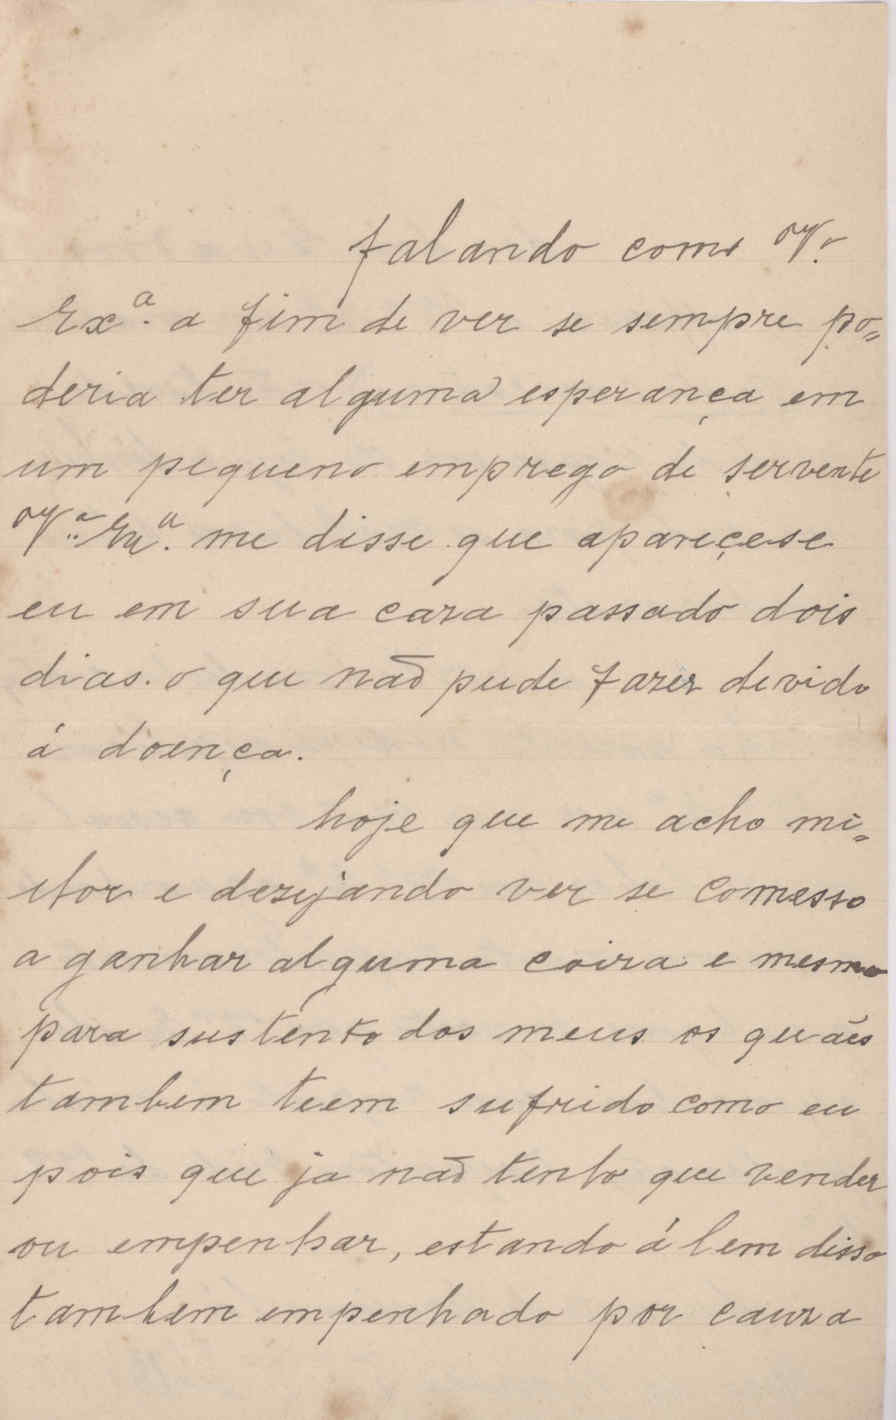 falando como V.
Exª. a fim de ver se sempre po=
deria ter alguma esperança em
um piqueno emprego de servente
V.ª Exª. me disse que apareçese
eu em sua caza passado dois
dias. o que não pude fazer devido
á doença.
hoje que me acho mi=
lhor e dezejando ver se comesso
a ganhar alguma coiza e mesmo
para sustento dos meus os quáes
tambem teem sufrido como eu
pois que ja não tenho que vender
ou empenhar, estando álem disso
tambem empenhado por cauza